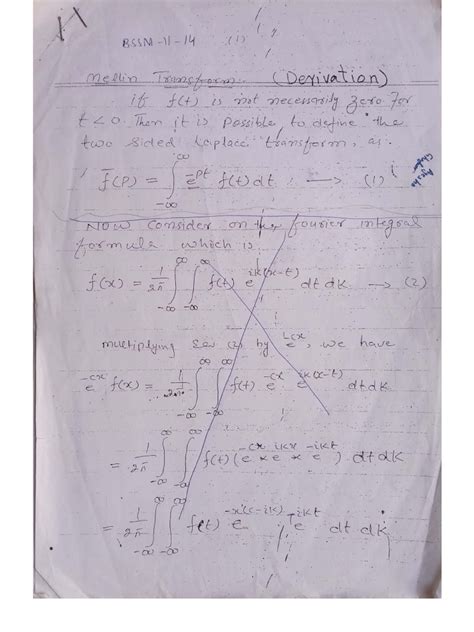 11
BSSM-11-14 (1)
Mellin Transform (Derivation)
if f(t) is not necessarily zero for
t < 0. Then it is possible to define the
two sided Laplace transform, as
f̄(p) = ∫_{-∞}^{∞} e^{-pt} f(t) dt ⟶ (1)
Now consider on the fourier integral
formula which is
f(x) = 1/2π ∫_{-∞}^{∞} ∫_{-∞}^{∞} f(t) e^{ik(x-t)} dt dk ⟶ (2)
multiplying (2) by, we have
e^{-cx} f(x) = 1/2π ∫_{-∞}^{∞} ∫_{-∞}^{∞} f(t) e^{-cx} e^{ik(x-t)} dt dk.
= 1/2π ∫_{-∞}^{∞} ∫_{-∞}^{∞} f(t) (e^{-cx} × e^{ikx} × e^{-ikt}) dt dk
= 1/2π ∫_{-∞}^{∞} ∫_{-∞}^{∞} f(t) e^{-x(c-ik)} e^{-ikt} dt dk